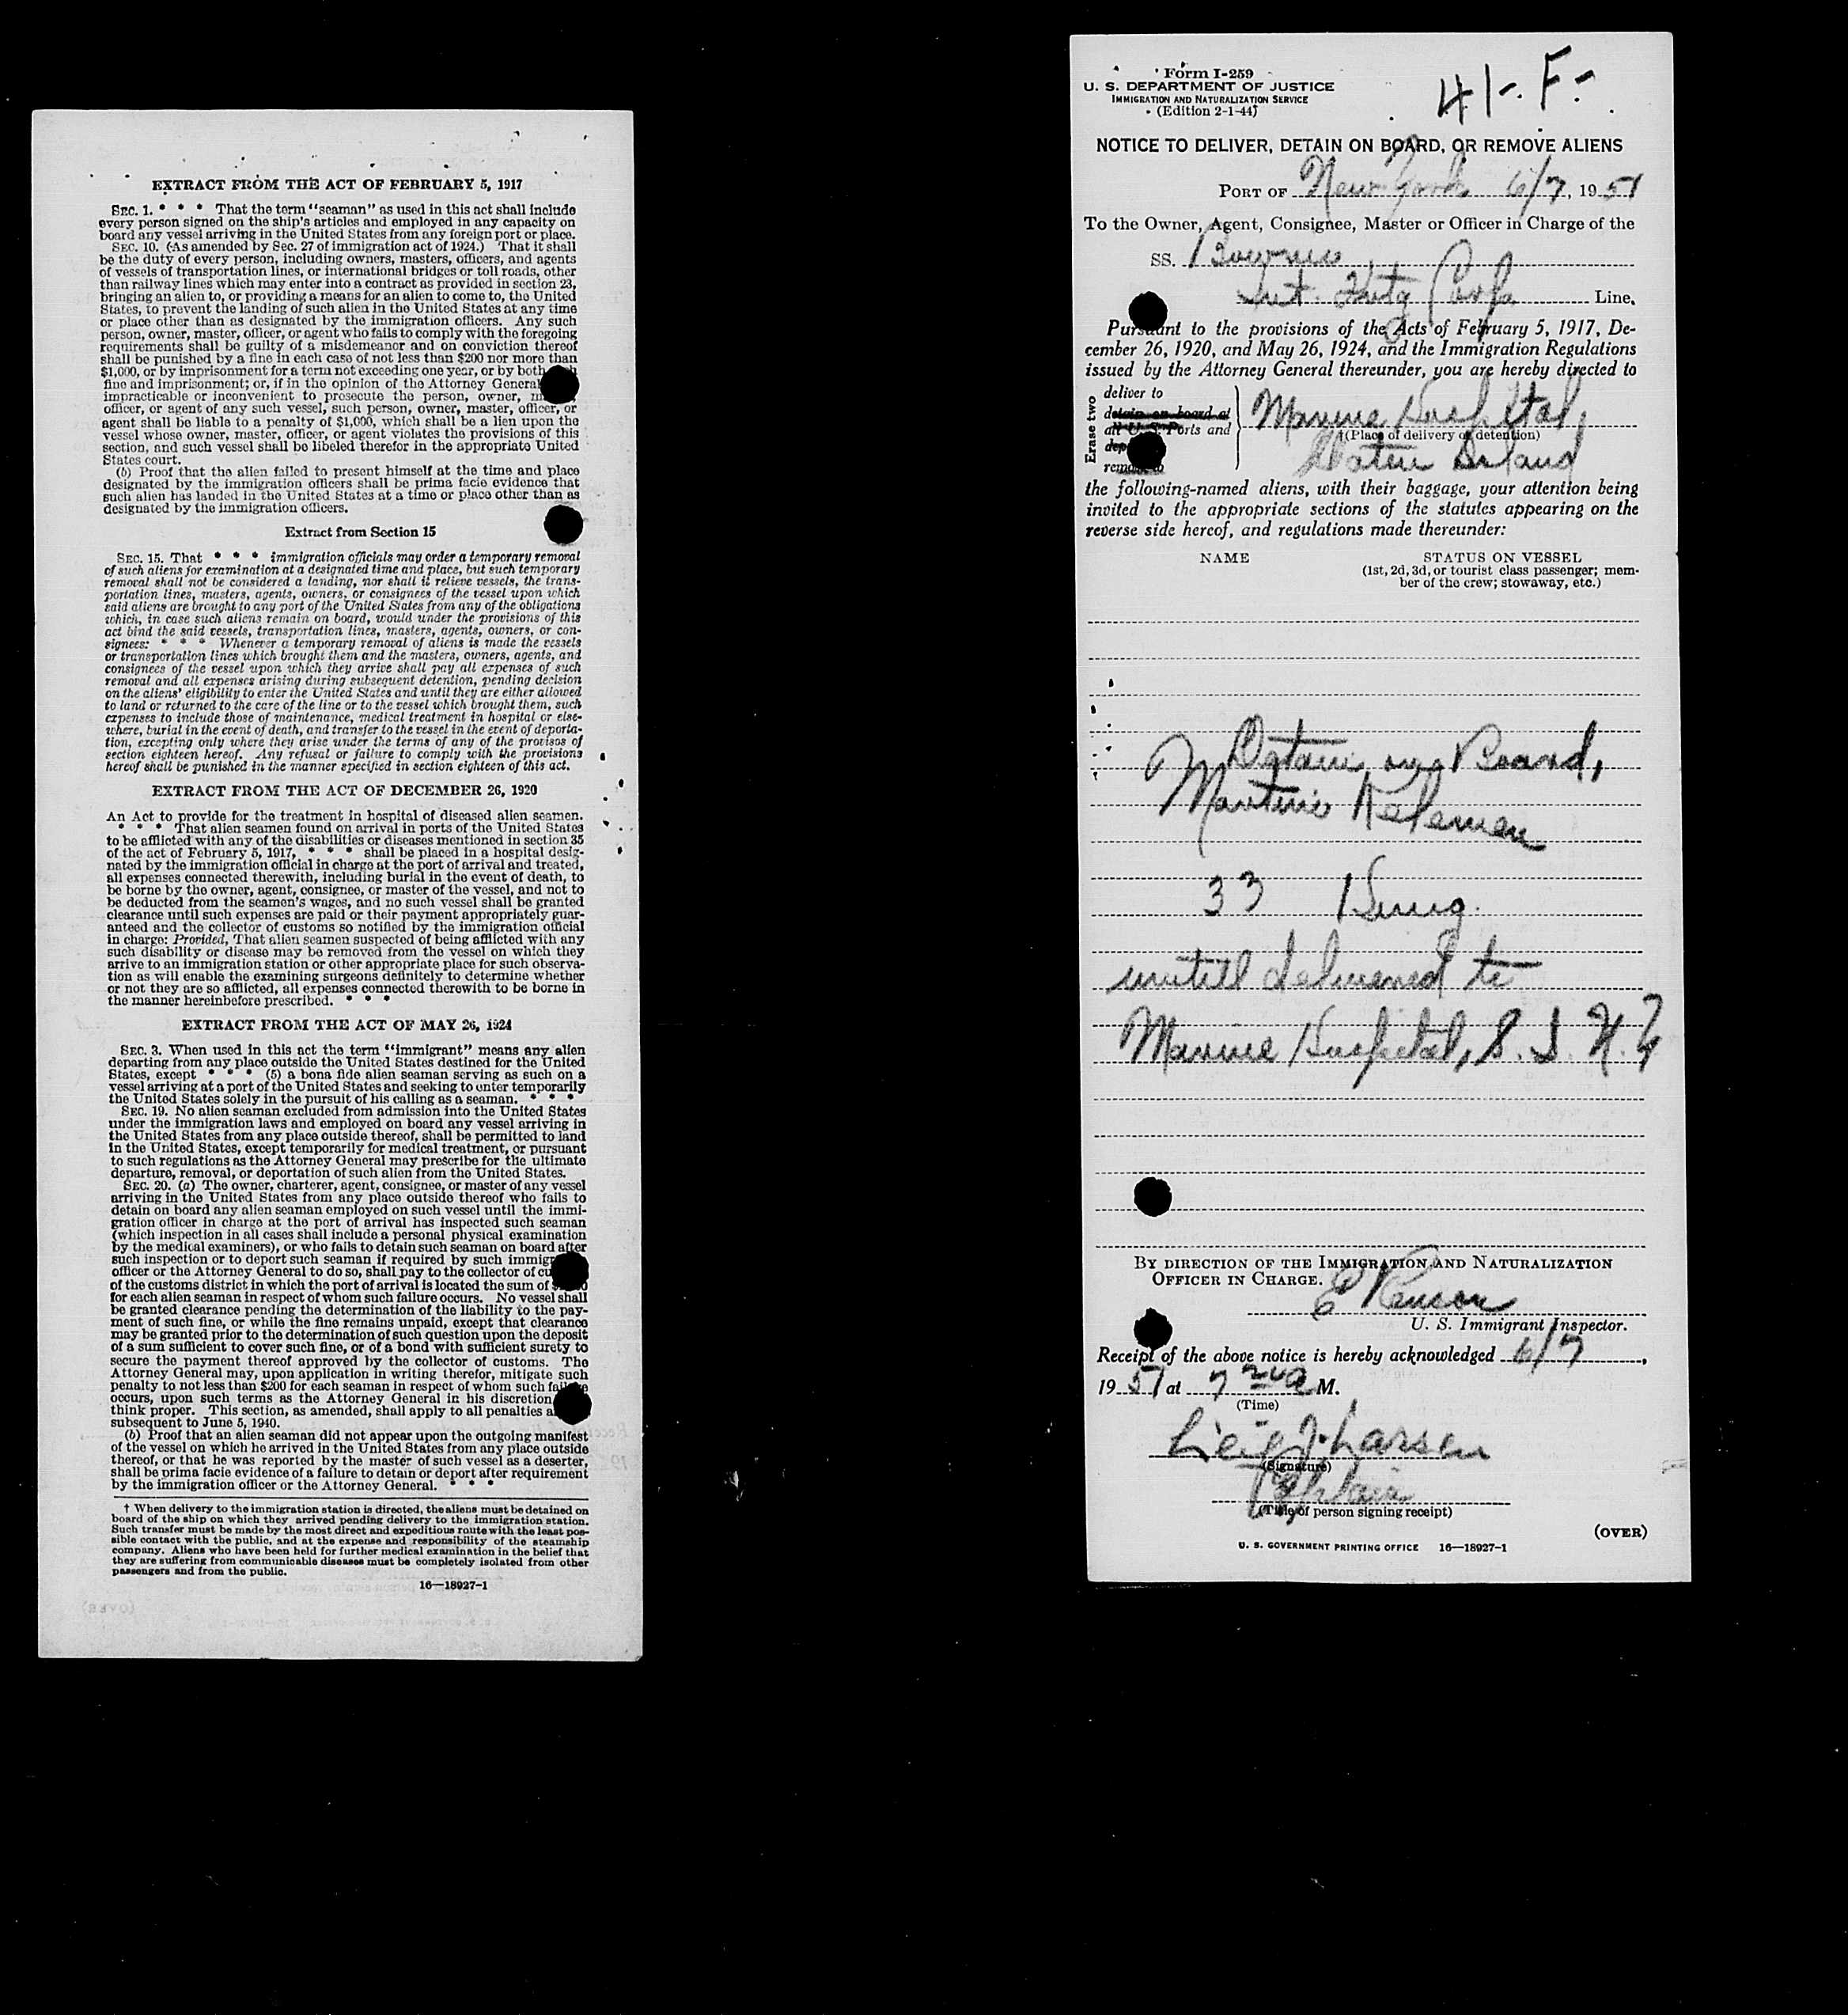 EXTRACT FROM THE ACT OF FEBRUARY 5, 1917
SEC. 1. * * * That the term "seaman" as used in this act shall include
every person signed on the ship's articles and employed in any capacity on
board any vessel arriving in the United States from any foreign port or place.
SEC. 10. (As amended by Sec. 27 of immigration act of 1924.) That it shall
be the duty of every person, including owners, masters, officers, and agents
of vessels of transportation lines, or international bridges or toll roads, other
than railway lines which may enter into a contract as provided in section 23,
bringing an alien to, or providing a means for an alien to come to, the United
States, to prevent the landing of such alien in the United States at any time
or place other than as designated by the immigration officers. Any such
person, owner, master, officer, or agent who fails to comply with the foregoing
requirements shall be guilty of a misdemeanor and on conviction thereof
shall be punished by a fine in each case of not less than $200 nor more than
$1,000, or by imprisonment for a term not exceeding one year, or by both
fine and imprisonment; or, if in the opinion of the Attorney General
impracticable or inconvenient to prosecute the person, owner,
officer, or agent of any such vessel, such person, owner, master, officer, or
agent shall be liable to a penalty of $1,000, which shall be a lien upon the
vessel whose owner, master, officer, or agent violates the provisions of this
section, and such vessel shall be libeled therefor in the appropriate United
States court.
(b) Proof that the alien failed to present himself at the time and place
designated by the immigration officers shall be prima facie evidence that
such alien has landed in the United States at a time or place other than as
designated by the immigration officers.
Extract from Section 15
SEC. 15. That * * * immigration officials may order a temporary removal
of such aliens for examination at a designated time and place, but such temporary
removal shall not be considered a landing, nor shall it relieve vessels, the trans-
portation lines, masters, agents, owners, or consignees of the vessel upon which
said aliens are brought to any port of the United States from any of the obligations
which, in case such aliens remain on board, would under the provisions of this
act bind the said vessels, transportation lines, masters, agents, owners, or con-
signees: * * * Whenever a temporary removal of aliens is made the vessels
or transportation lines which brought them and the masters, owners, agents, and
consignees of the vessel upon which they arrive shall pay all expenses of such
removal and all expenses arising during subsequent detention, pending decision
on the aliens' eligibility to enter the United States and until they are either allowed
to land or returned to the care of the line or to the vessel which brought them, such
expenses to include those of maintenance, medical treatment in hospital or else-
where, burial in the event of death, and transfer to the vessel in the event of deporta-
tion, excepting only where they arise under the terms of any of the provisos of
section eighteen hereof. Any refusal or failure to comply with the provisions
hereof shall be punished in the manner specified in section eighteen of this act.
EXTRACT FROM THE ACT OF DECEMBER 26, 1920
An Act to provide for the treatment in hospital of diseased alien seamen.
* * * That alien seamen found on arrival in ports of the United States
to be afflicted with any of the disabilities or diseases mentioned in section 35
of the act of February 5, 1917, * * * shall be placed in a hospital desig-
nated by the immigration official in charge at the port of arrival and treated,
all expenses connected therewith, including burial in the event of death, to
be borne by the owner, agent, consignee, or master of the vessel, and not to
be deducted from the seamen's wages, and no such vessel shall be granted
clearance until such expenses are paid or their payment appropriately guar-
anteed and the collector of customs so notified by the immigration official
in charge: Provided, That alien seamen suspected of being afflicted with any
such disability or disease may be removed from the vessel on which they
arrive to an immigration station or other appropriate place for such observa-
tion as will enable the examining surgeons definitely to determine whether
or not they are so afflicted, all expenses connected therewith to be borne in
the manner hereinbefore prescribed. * * *
EXTRACT FROM THE ACT OF MAY 26, 1924
SEC. 3. When used in this act the term "immigrant" means any alien
departing from any place outside the United States destined for the United
States, except * * * (5) a bona fide alien seaman serving as such on a
vessel arriving at a port of the United States and seeking to enter temporarily
the United States solely in the pursuit of his calling as a seaman. * * *
SEC. 19. No alien seaman excluded from admission into the United States
under the immigration laws and employed on board any vessel arriving in
the United States from any place outside thereof, shall be permitted to land
in the United States, except temporarily for medical treatment, or pursuant
to such regulations as the Attorney General may prescribe for the ultimate
departure, removal, or deportation of such alien from the United States.
SEC. 20. (a) The owner, charterer, agent, consignee, or master of any vessel
arriving in the United States from any place outside thereof who fails to
detain on board any alien seaman employed on such vessel until the immi-
gration officer in charge at the port of arrival has inspected such seaman
(which inspection in all cases shall include a personal physical examination
by the medical examiners), or who fails to detain such seaman on board after
such inspection or to deport such seaman if required by such
officer or the Attorney General to do so, shall pay to the collector of
of the customs district in which the port of arrival is located the sum of
for each alien seaman in respect of whom such failure occurs. No vessel shall
be granted clearance pending the determination of the liability to the pay-
ment of such fine, or while the fine remains unpaid, except that clearance
may be granted prior to the determination of such question upon the deposit
of a sum sufficient to cover such fine, or of a bond with sufficient surety to
secure the payment thereof approved by the collector of customs. The
Attorney General may, upon application in writing therefor, mitigate such
penalty to not less than $200 for each seaman in respect of whom such failure
occurs, upon such terms as the Attorney General in his discretion
think proper. This section, as amended, shall apply to all penalties
subsequent to June 5, 1940.
(b) Proof that an alien seaman did not appear upon the outgoing manifest
of the vessel on which he arrived in the United States from any place outside
thereof, or that he was reported by the master of such vessel as a deserter,
shall be prima facie evidence of a failure to detain or deport after requirement
by the immigration officer or the Attorney General. * * *
† When delivery to the immigration station is directed, the aliens must be detained on
board of the ship on which they arrived pending delivery to the immigration station.
Such transfer must be made by the most direct and expeditious route with the least pos-
sible contact with the public, and at the expense and responsibility of the steamship
company. Aliens who have been held for further medical examination in the belief that
they are suffering from communicable diseases must be completely isolated from other
passengers and from the public.
16—18927-1
Form I-259
U. S. DEPARTMENT OF JUSTICE
IMMIGRATION AND NATURALIZATION SERVICE
(Edition 2-1-44)
41-. F-.
NOTICE TO DELIVER, DETAIN ON BOARD, OR REMOVE ALIENS
PORT OF New York 6/7, 1951
To the Owner, Agent, Consignee, Master or Officer in Charge of the
SS.
Line.
Pursuant to the provisions of the Acts of February 5, 1917, De-
cember 26, 1920, and May 26, 1924, and the Immigration Regulations
issued by the Attorney General thereunder, you are hereby directed to
Erase two
deliver to
detain on board at
all U. S. Ports and
remove to
Marine Hospital,
†(Place of delivery or detention)
Staten Island
the following-named aliens, with their baggage, your attention being
invited to the appropriate sections of the statutes appearing on the
reverse side hereof, and regulations made thereunder:
NAME
STATUS ON VESSEL
(1st, 2d, 3d, or tourist class passenger; mem-
ber of the crew; stowaway, etc.)
Detain on Board,
Kelemen
33 Hung.
untill delivered to
Marine Hospital, S. I. N. Y
BY DIRECTION OF THE IMMIGRATION AND NATURALIZATION
OFFICER IN CHARGE.
U. S. Immigrant Inspector.
Receipt of the above notice is hereby acknowledged 6/7,
1951 at 7 M.
(Time)
Leif J. Larsen
(Signature)
Captain
(Title of person signing receipt)
(OVER)
U. S. GOVERNMENT PRINTING OFFICE 16—18927-1